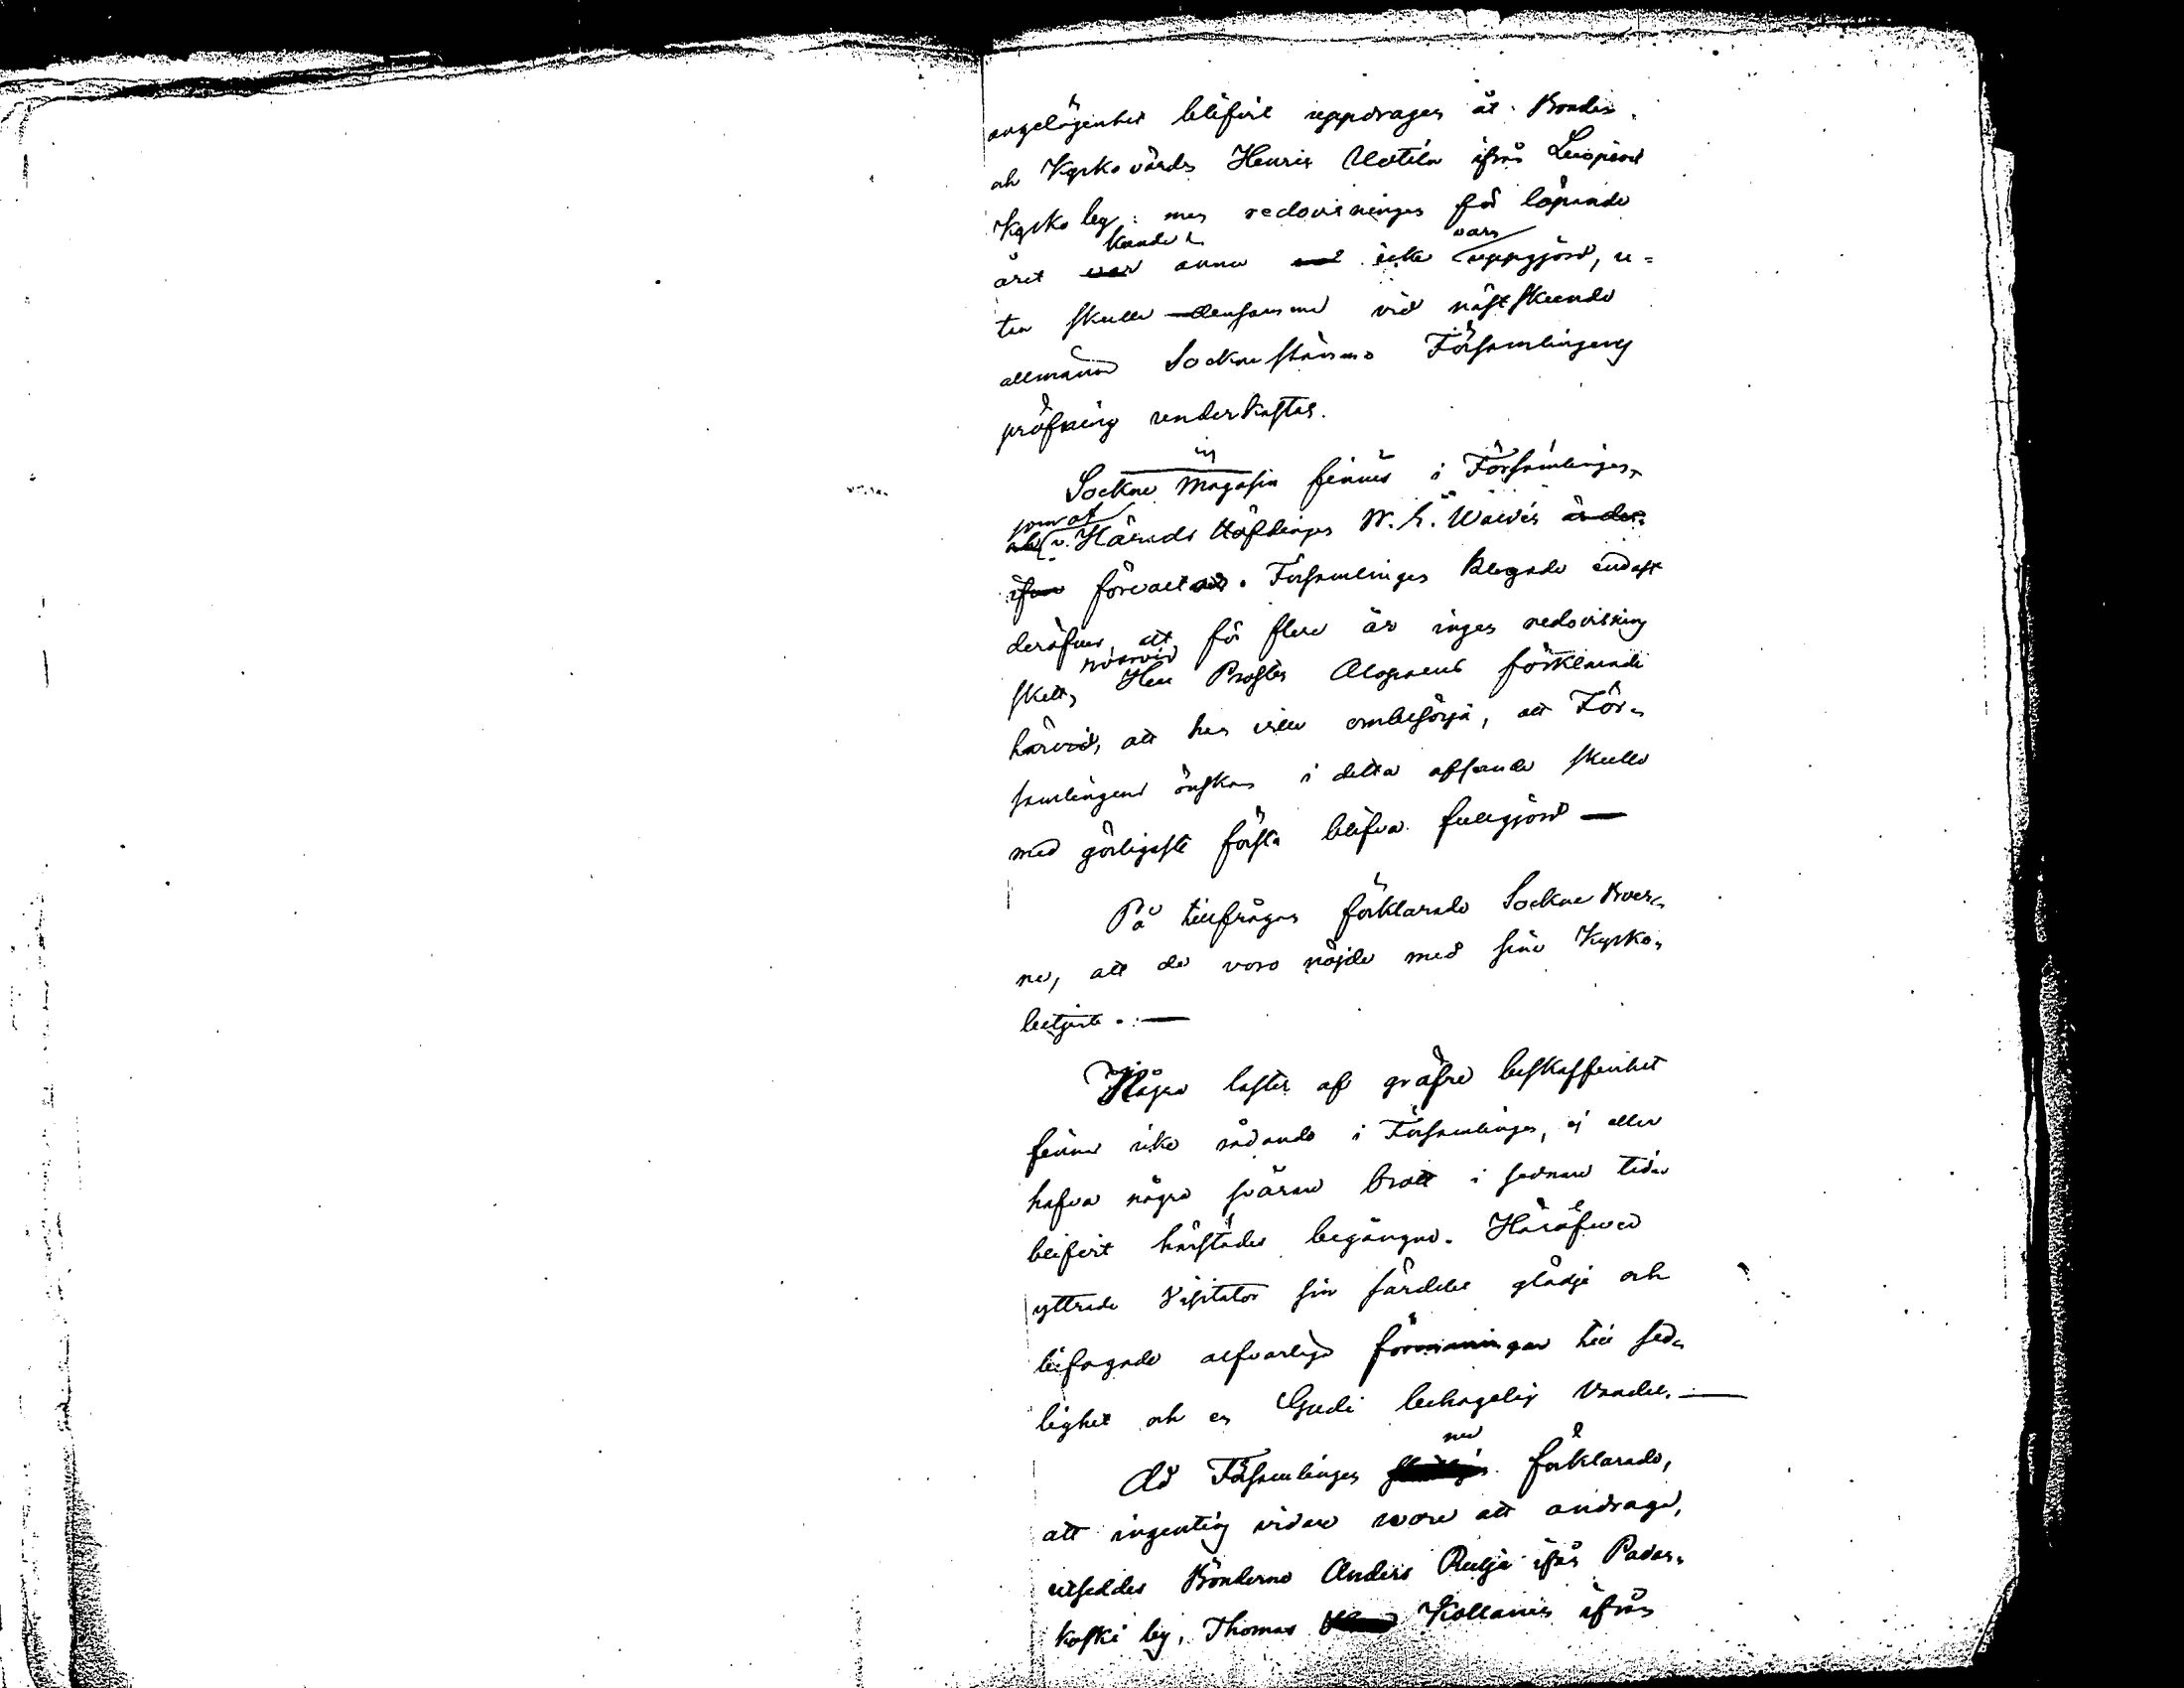 angelägenhet blifvit uppdragen åt Bonden
och Kyrkovärden Henric Uotila ifrån
Kyrko by: men redovisningen för löpande
året kunde annu icke vara uppgjord, u=
tan skulle densamma vid nästskeende
allmänna Sockne stämma Församlingens
pröfning underkastas.
Sockne Magasin finnes i Församlingen,
som af v. Härads Höfdingen
förvaltas. Församlingen klagade endast
deröfver, att för flere år ingen redovisning
skett, hvarvid Herr Prosten Alopaeus förklarade
härvid, att han ville ombesörja, att För-
samlingens önskan i detta afseende skulle
med görligaste första blifva fullgjord —
På tillfrågan förklarade Sockne Boer-
ne, att de voro nöjde med sine Kyrko-
betjente. —
Några laster af gröfre beskaffenhet
finnas icke rådande i Församlingen, ej eller
hafva några svårare brott i sednare tider
blifvit härstädes begångne. Häröfver
yttrade Visitator sin särdeles glädje och
bifogade alfvarliga förmaningar till sed-
lighet och en Gudi behagelig vandel. —
Då Församlingen nu förklarade,
att ingenting vidare vore att andraga,
utseddes Bönderne Anders Rulja ifrån Padas-
koski by, Thomas Kollanen ifrån